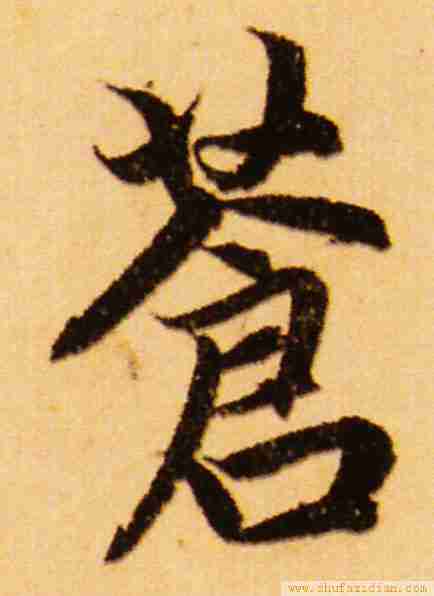 蒼
www.shufazidian.com